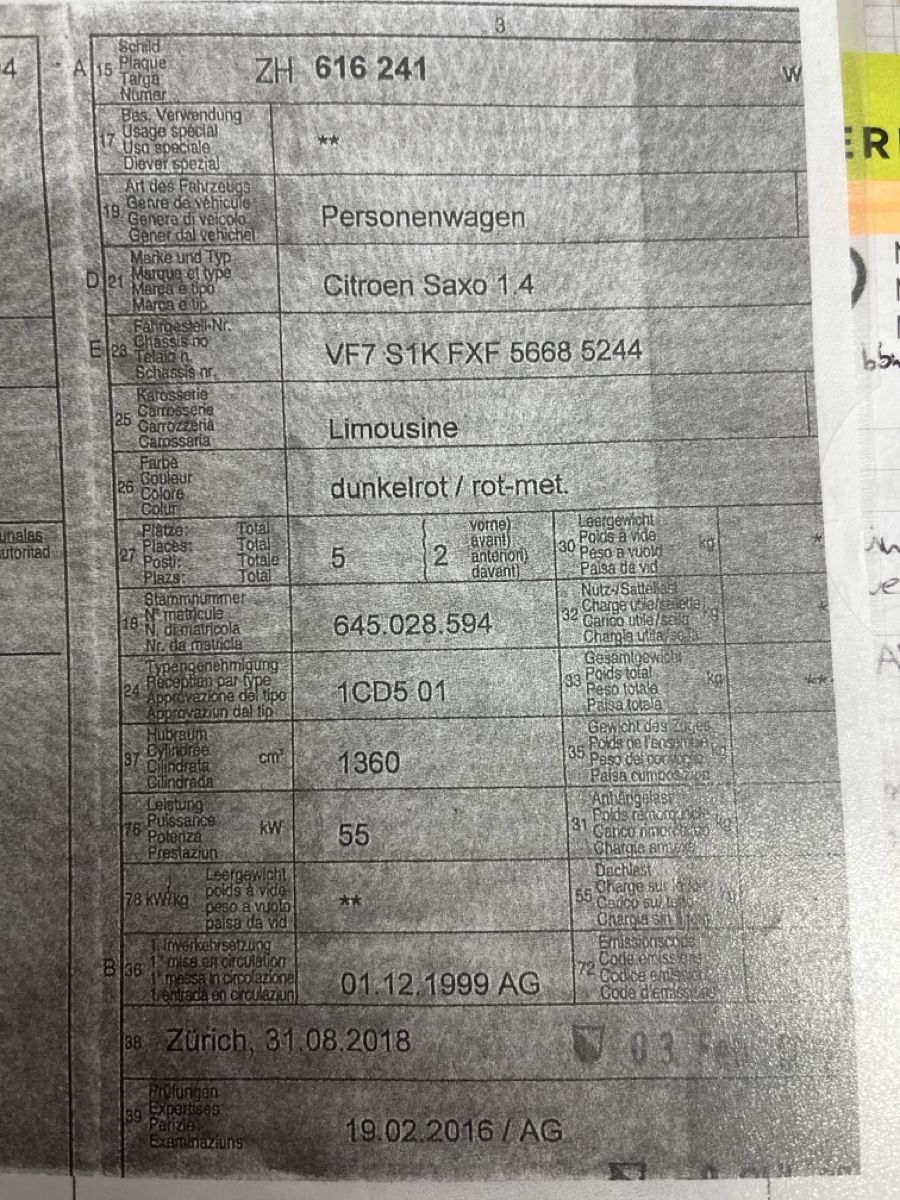 3
A 15 Schild
Plaque
Targa
Numer
ZH 616 241
W
17 Bes. Verwendung
Usage spécial
Uso speciale
Diever spezial
**
19 Art des Fahrzeugs
Genre de véhicule
Genere di veicolo
Gener dal vehichel
Personenwagen
D 21 Marke und Typ
Marque et type
Marca e tipo
Marca e tip
Citroen Saxo 1.4
E 23 Fahrgestell-Nr.
Châssis no
Telaio n.
Schassis nr.
VF7 S1K FXF 5668 5244
25 Karosserie
Carrosserie
Carrozzeria
Carossaria
Limousine
26 Farbe
Couleur
Colore
Colur
dunkelrot / rot-met.
27 Plätze: Total
Places: Total
Posti: Totale
Plazs: Total
5
2
vorne)
avant)
anteriori)
davant)
30 Leergewicht
Poids à vide
Peso a vuoto
Paisa da vid
kg
*
18 Stammnummer
N° matricule
N. di matricola
Nr. da matricla
645.028.594
32 Nutz-/Sattellast
Charge utile/sellette
Carico utile/sella
Chargia utila/sella
kg
*
24 Typengenehmigung
Réception par type
Approvazione del tipo
Approvaziun dal tip
1CD5 01
33 Gesamtgewicht
Poids total
Peso totale
Paisa totala
kg
**
37 Hubraum
Cylindrée
Cilindrata
Cilindrada
cm³
1360
35 Gewicht des Zuges
Poids de l'ensemble
Peso del convoglio
Paisa cumposiziun
kg
76 Leistung
Puissance
Potenza
Prestaziun
kW
55
31 Anhängelast
Poids remorquable
Carico rimorchiato
Chargia annexa
kg
78 kW/kg
Leergewicht
poids à vide
peso a vuoto
paisa da vid
**
55 Dachlast
Charge sur le toit
Carico sul tetto
Chargia sin il tetg
B 36 1. Inverkehrsetzung
1re mise en circulation
1a messa in circolazione
1. entrada en circulaziun
01.12.1999 AG
72 Emissionscode
Code émissions
Codice emissioni
Code d'emissiuns
38 Zürich, 31.08.2018
03 Feb
39 Prüfungen
Expertises
Perizie
Examinaziuns
19.02.2016 / AG